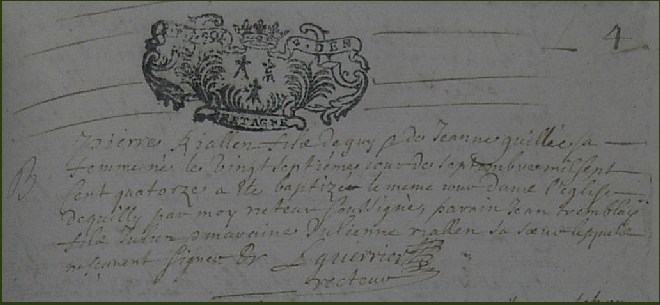 4
DEN
BRETAGNE
pierre Riallen fils de guy & de Jeanne quillec sa
femme né le vingt septième jour de septembre mil sept
cent quatorze a ete baptizé le meme jour dans l'eglise
de quilly par moy recteur soussigné, parain Jean tremblay
fils Julien & maraine Julienne riallen sa sœur lesquels
ne scavent signer
L guerrier
recteur
B